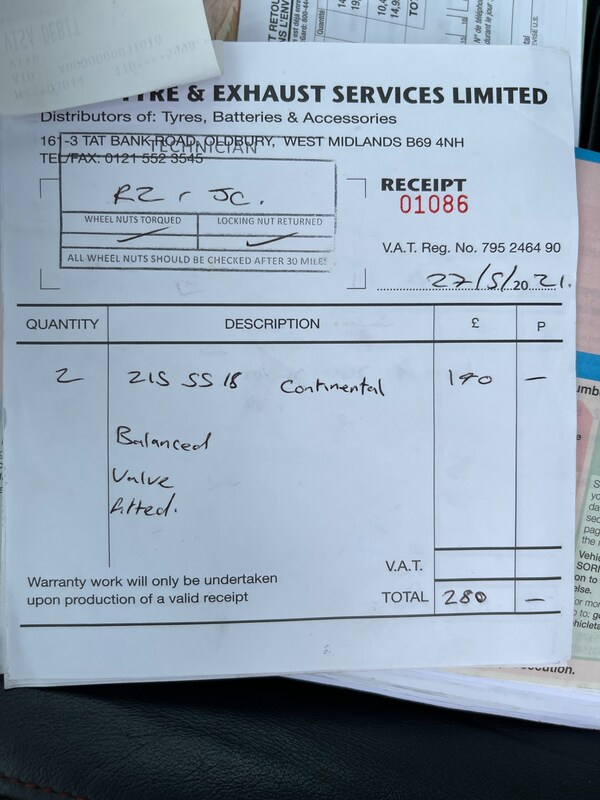 TYRE & EXHAUST SERVICES LIMITED
Distributors of: Tyres, Batteries & Accessories
161-3 TAT BANK ROAD, OLDBURY, WEST MIDLANDS B69 4NH
TEL/FAX: 0121 552 3545
TECHNICIAN
RZ, JC.
WHEEL NUTS TORQUED LOCKING NUT RETURNED
ALL WHEEL NUTS SHOULD BE CHECKED AFTER 30 MILES
RECEIPT
01086
V.A.T. Reg. No. 795 2464 90
27/5/2021.
QUANTITY DESCRIPTION £ P
2 215 55 18 Continental 140 —
Balanced
Valve
fitted.
V.A.T.
Warranty work will only be undertaken
upon production of a valid receipt
TOTAL 280 —